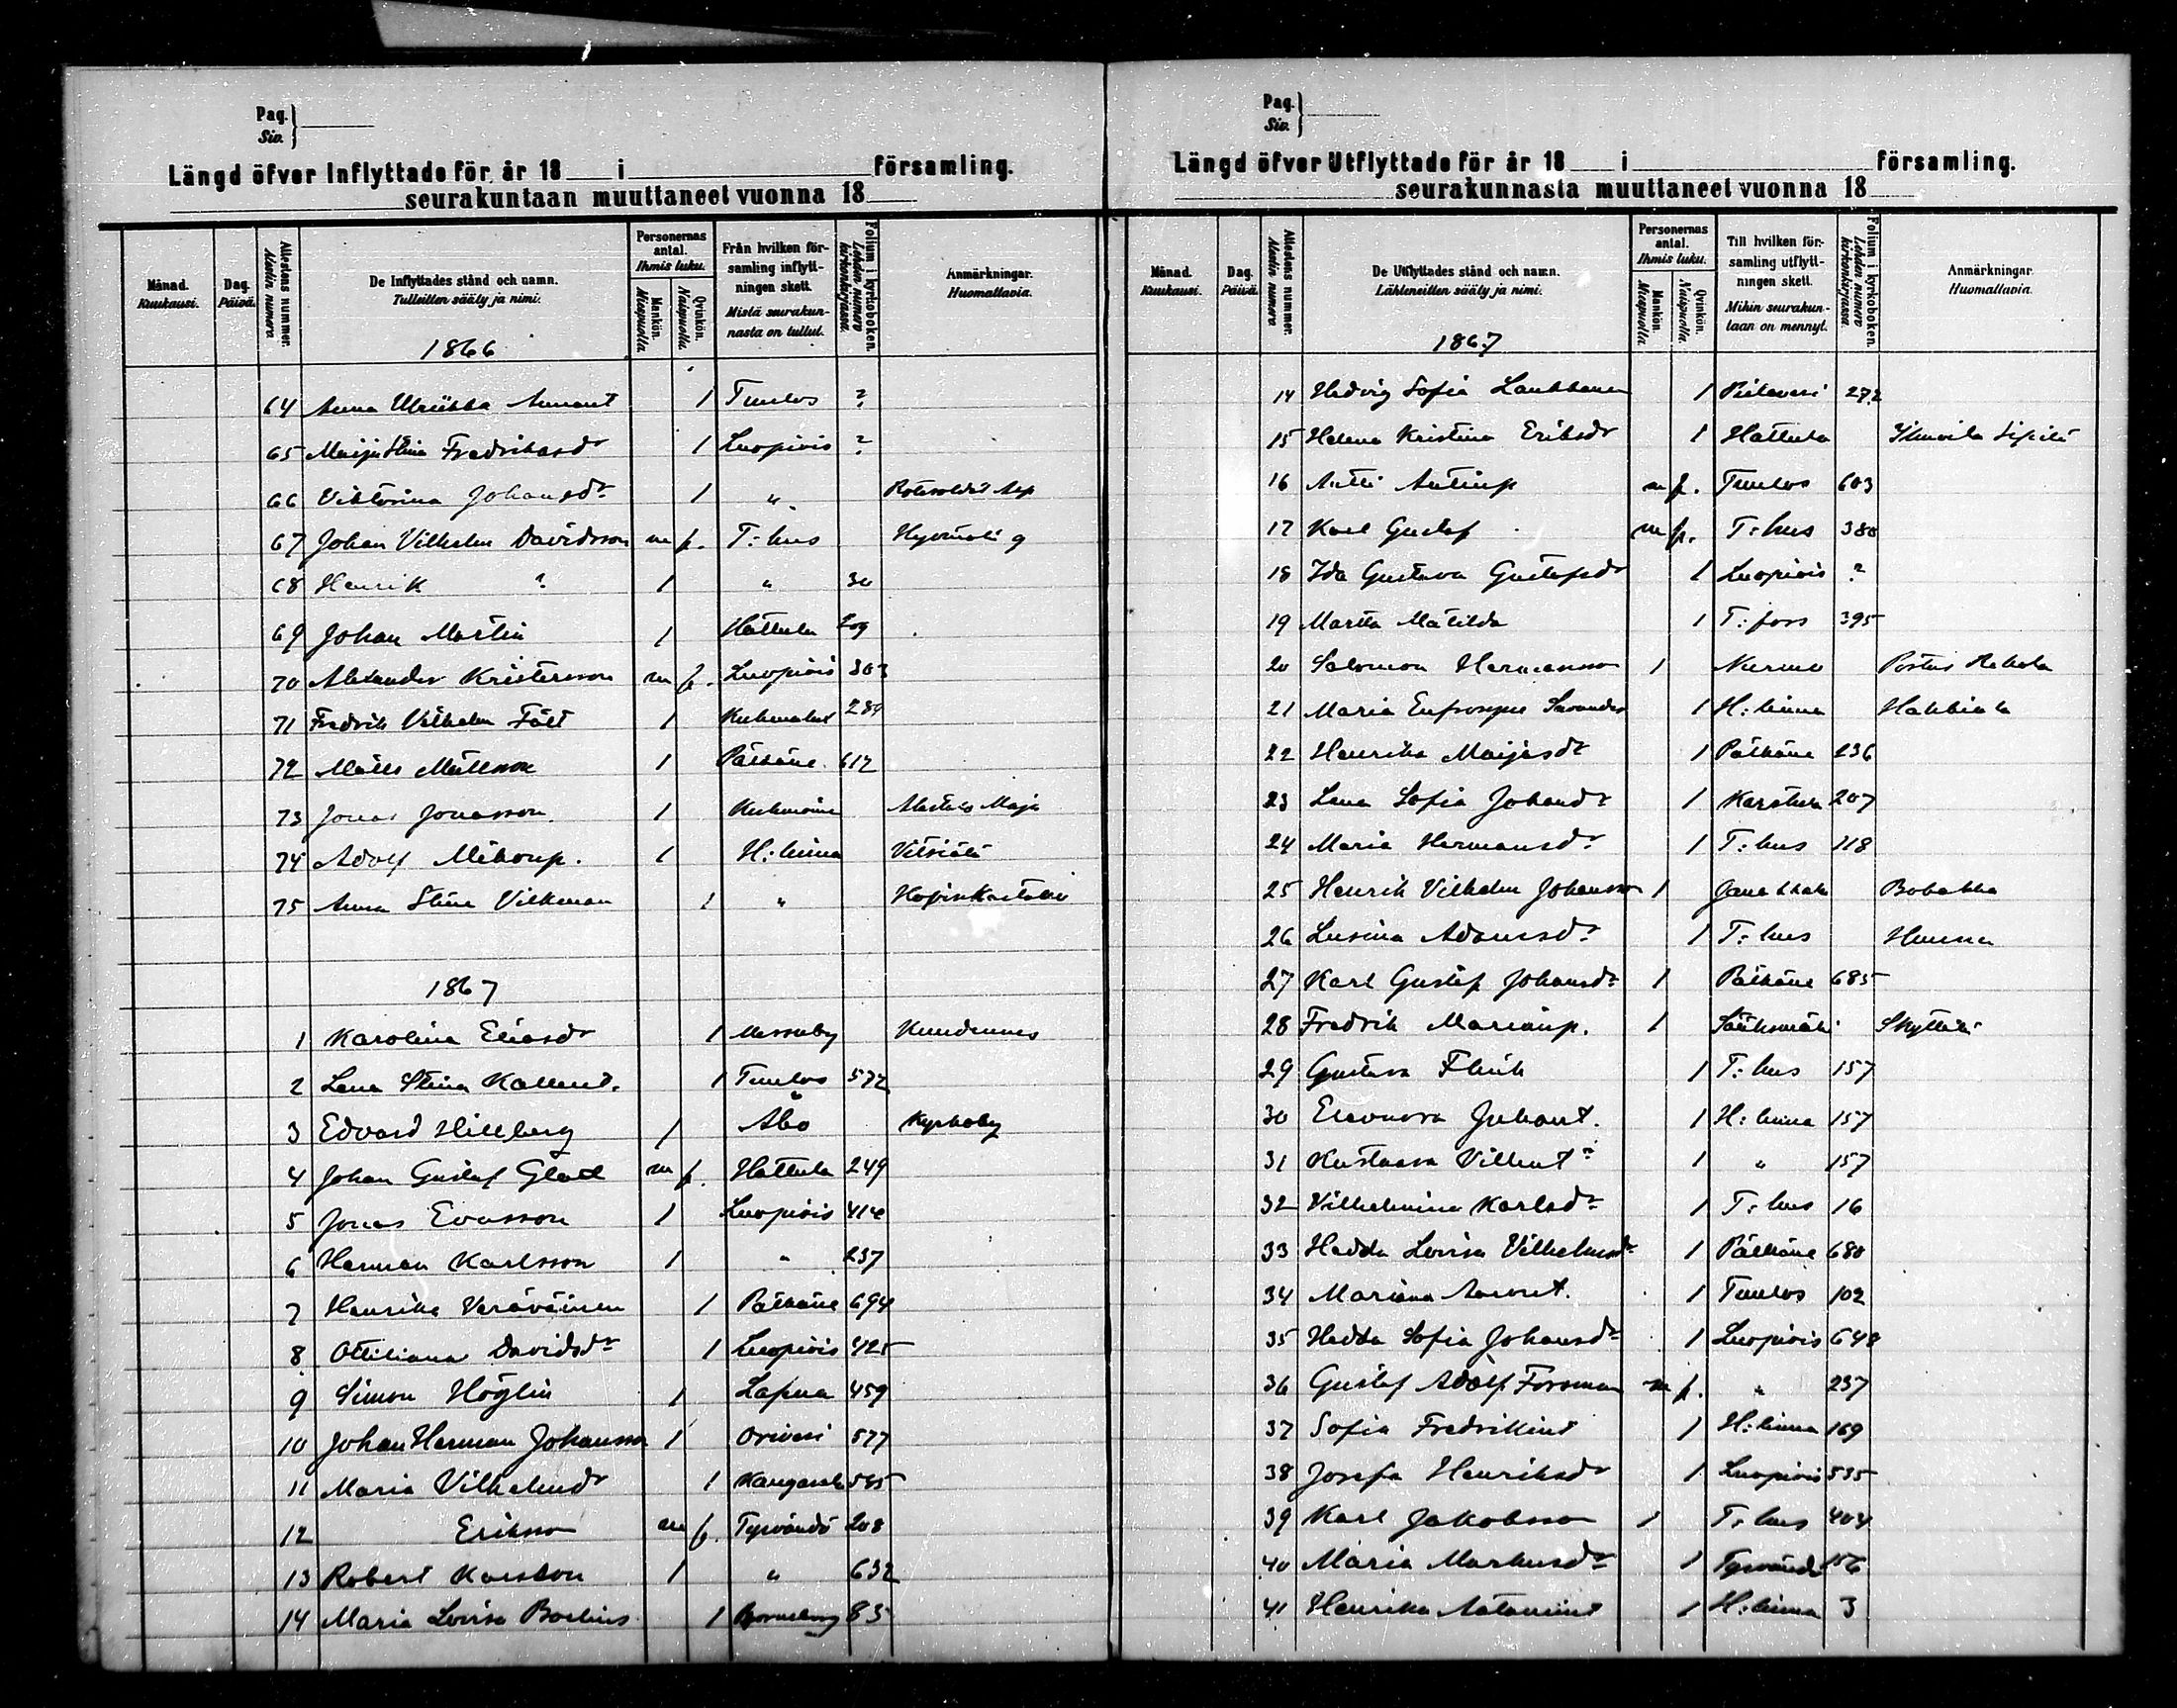 Pag.
Siv.
Längd öfver Inflyttade för år 18 i församling.
seurakuntaan muuttaneet vuonna 18
Månad. Kuukausi.
Dag. Päivä.
Attestens nummer. Alestin numero
De Inflyttades stånd och namn. Tulleitten sääty ja nimi.
Personernas antal. Ihmis luku.
Mankön. Miespuolta
Qvinkön. Naispuolta.
Från hvilken församling inflyttningen skett. Mistä seurakunnasta on tullut.
Folium i kyrkoboken. Lehden numero kirkonkirjassa.
Anmärkningar. Huomattavia.
1866
64 Anna Ulriikka 1 Tuulos ?
65 Maija Stina Fredriksdr 1 Luopiois ?
66 Viktorina Johansdr 1 "
67 Johan Vilhelm Davidsson m f. T:hus
68 Henrik ? 1 " 30
69 Johan Martin 1 Hattula 209
70 Alexander Kristersson m f. Luopiois 303
71 Fredrik Vilhelm Fält 1 284
72 Matts Mattsson 1 Pälkäne 612
73 Jonas Jonasson 1 Kuhmoine
74 Adolf 1 H:linna
75 Anna Stina Vilkman 1 "
1867
1 Karolina Eliasdr 1 Messuby
2 Lena Stina 1 Tuulos 572
3 Edvard Hillberg 1 Åbo Kyrkoby
4 Johan Gustaf Glad m f. Hattula 249
5 Jonas Evasson 1 Luopiois 414
6 Herman Karlsson 1 " 237
7 Henrika 1 Pälkäne 694
8 Ottiliana Davidsdr 1 Luopiois 425
9 Simon Höglin 1 Lapua 459
10 Johan Herman Johansson 1 Orivesi 577
11 Maria Vilhelmsdr 1 Kangasala 585
12 Eriksson m f. Tyrväntö 208
13 Robert Karlsson 1 " 632
14 Maria Lovisa 1 Björneborg 83
Pag.
Siv.
Längd öfver Utflyttade för år 18 i församling.
seurakunnasta muuttaneet vuonna 18
Månad. Kuukausi.
Dag. Päivä.
Attestens nummer. Alestin numero
De Utflyttades stånd och namn. Lähteneitten sääty ja nimi.
Personernas antal. Ihmis luku.
Mankön. Miespuolta
Qvinkön. Naispuolta.
Till hvilken församling utflyttningen skett. Mihin seurakuntaan on mennyt.
Folium i kyrkoboken. Lehden numero kirkonkirjassa.
Anmärkningar. Huomattavia.
1867
14 Hedvig Sofia 1 272
15 Helena Kristina Eriksdr 1 Hattula
16 Antti m f. Tuulos 603
17 Karl Gustaf m f. T:hus 380
18 Ida Gustava Gustafsdr 1 Luopiois ?
19 Martta Matilda 1 T:fors 395
20 Salomon Hermansson 1
21 Maria 1 H:linna
22 Henrika Maijasdr 1 Pälkäne 236
23 Lena Sofia Johansdr 1 207
24 Maria Hermansdr 1 T:hus 118
25 Henrik Vilhelm Johansson 1 Janakkala
26 Lusina Adamsdr 1 T:hus
27 Karl Gustaf Johansdr 1 Pälkäne 685
28 Fredrik 1 Sääksmäki Skyttälä
29 Gustava 1 T:hus 157
30 Eleonora Juhant. 1 H:linna 157
31 Kustaava 1 " 157
32 Vilhelmina Karlsdr 1 T:hus 16
33 Hedda Lovisa Vilhelmsdr 1 Pälkäne 680
34 Mariana 1 Tuulos 102
35 Hedda Sofia Johansdr 1 Luopiois 648
36 Gustaf Adolf Forsman m f. " 237
37 Sofia 1 H:linna 169
38 Josefa Henriksdr 1 Luopiois 535
39 Karl Jakobsson 1 T:hus 404
40 Maria Markusdr 1 Tyrväntö 156
41 Henrika 1 H:linna 3